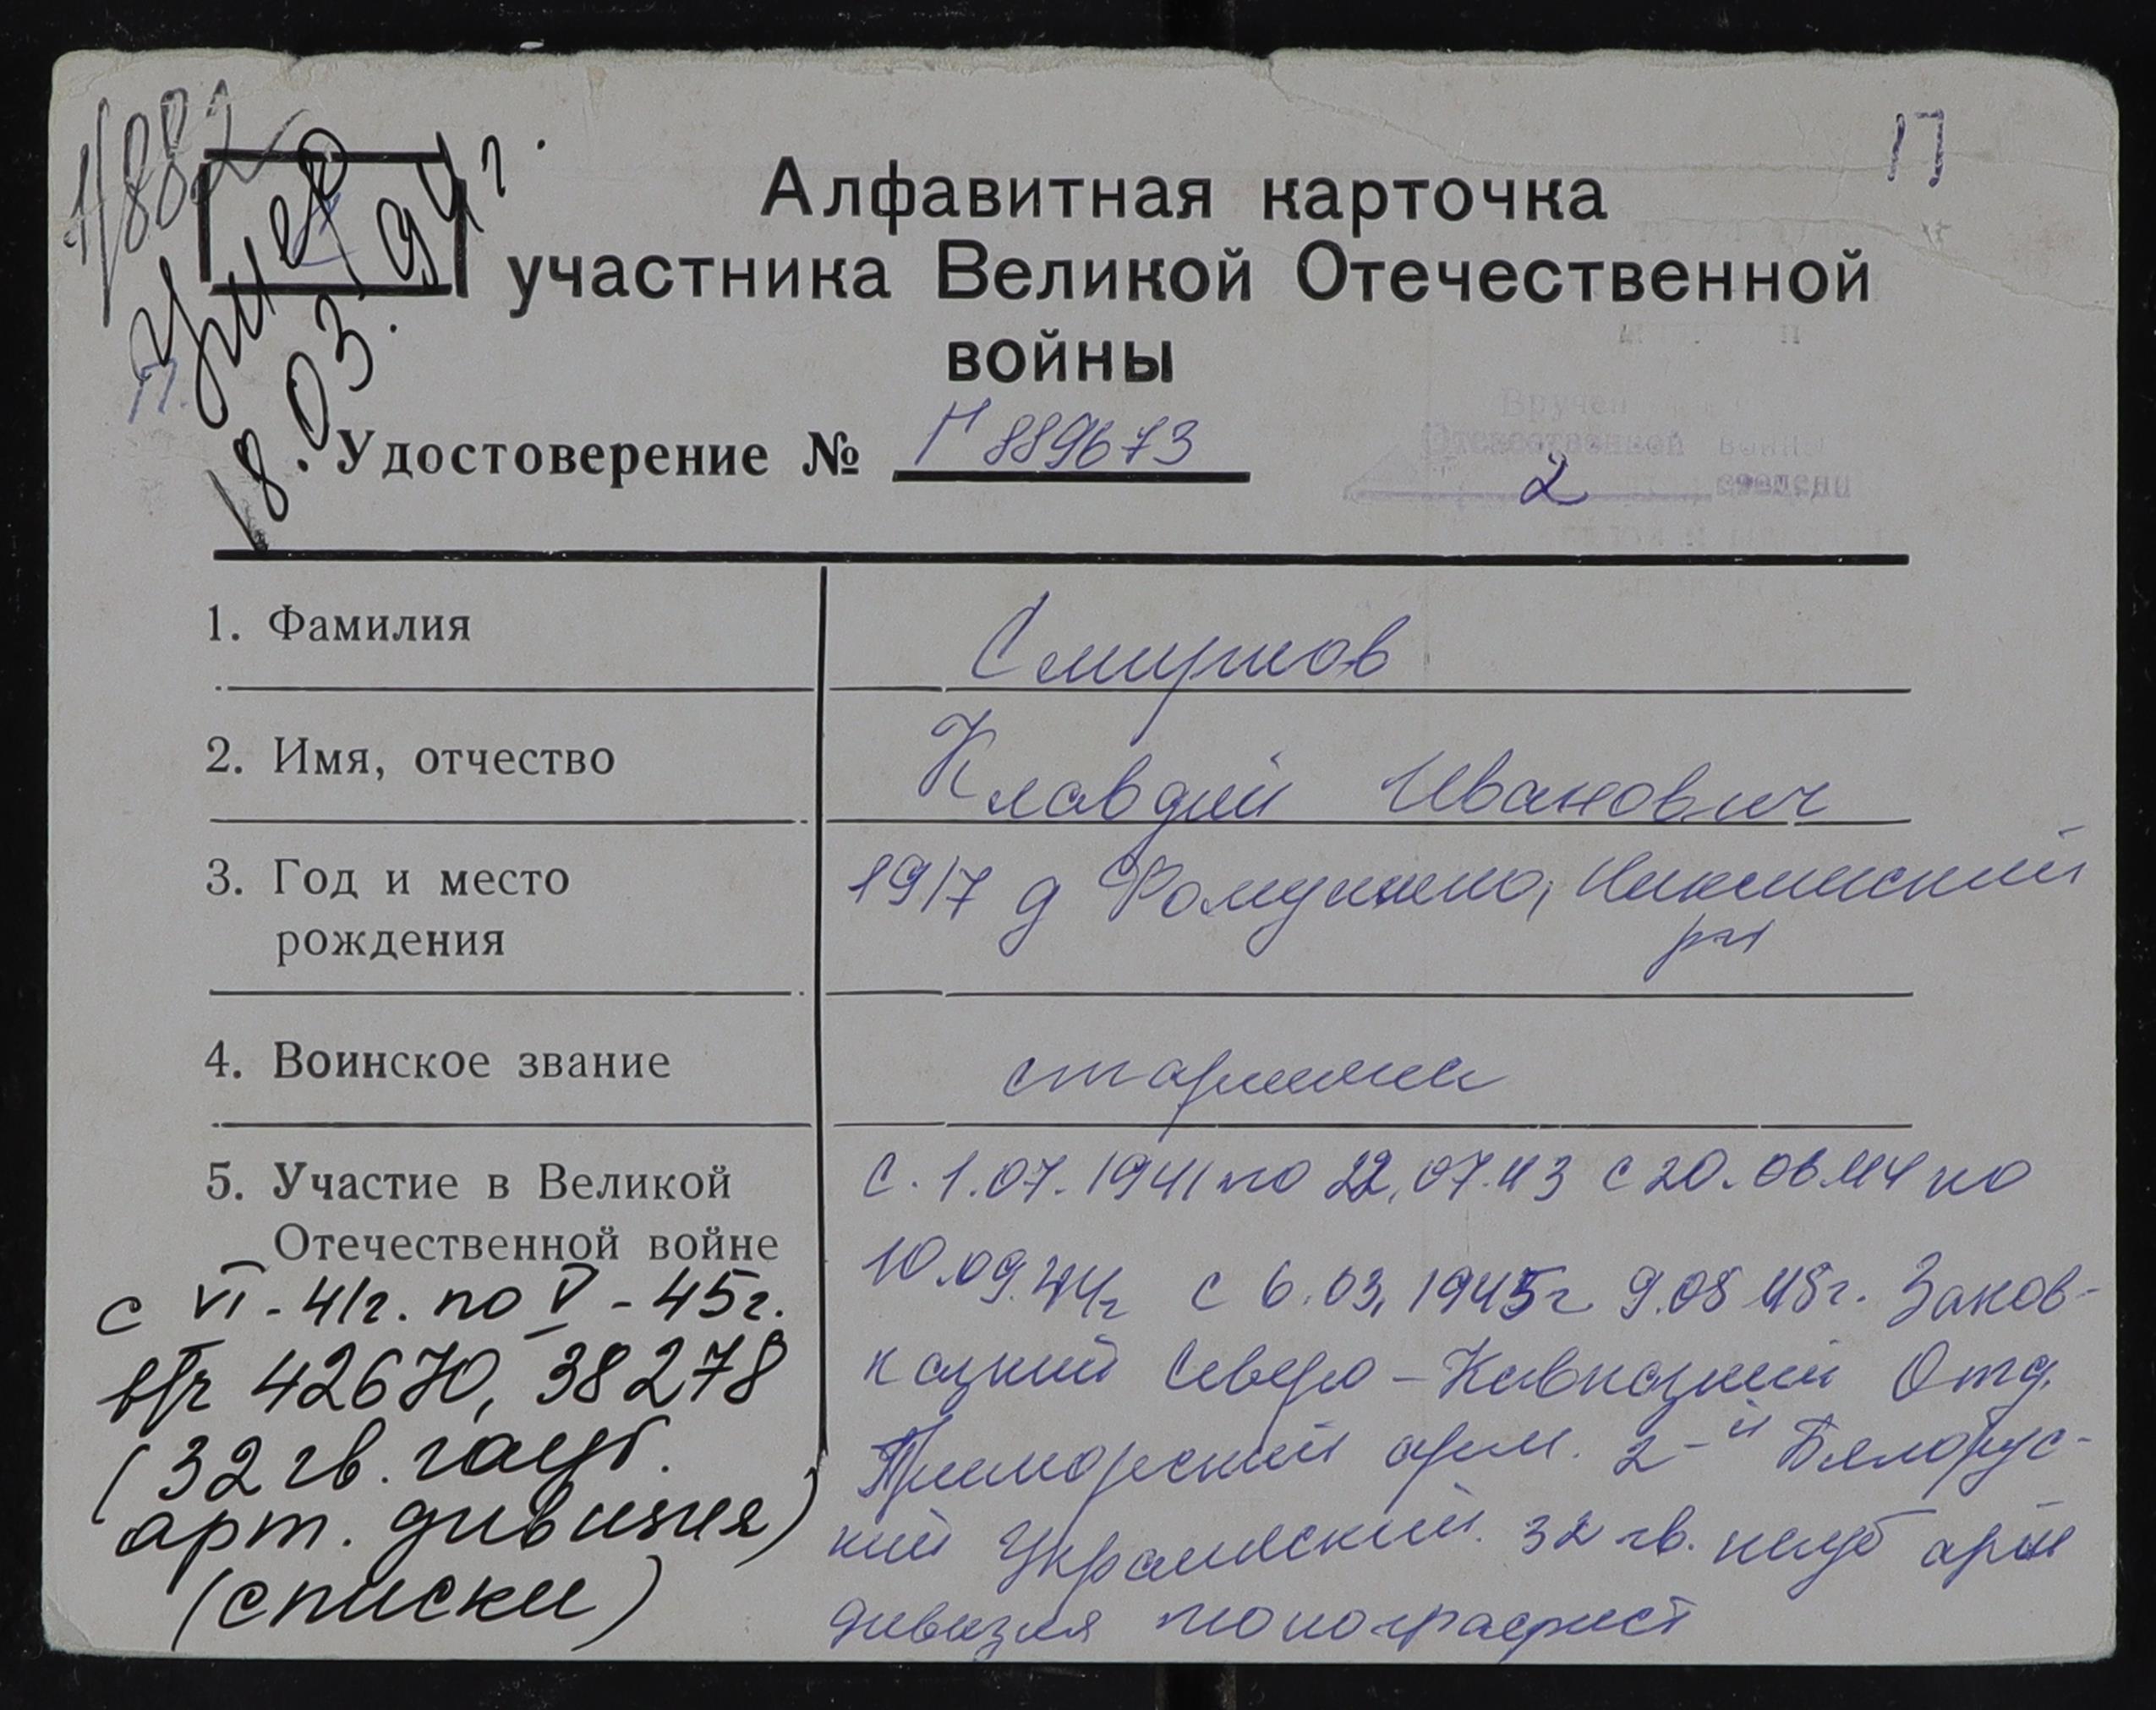 1/882
Умер
18.03.94г.
П
Алфавитная карточка
участника Великой Отечественной
войны
Удостоверение № П 889673
Вручен
Отечественной войны
2
1. Фамилия Смирнов
2. Имя, отчество Клавдий Иванович
3. Год и место 1917 д
рождения рн
4. Воинское звание старшина
5. Участие в Великой С. 1.07.1941 по 22.07.43 с 20.06.44 по
Отечественной войне 10.09.44г с 6.03.1945г 9.05 45г. Заков-
с VI-41г. по V-45г. казкий Северо-Кавказкий Отд.
в/ч 42670, 38278 Приморский арм. 2-й Бялорус-
(32 гв. гауб. кий Украинский. 32 гв. арт
арт. дивизия) дивизия топографист
(списки)